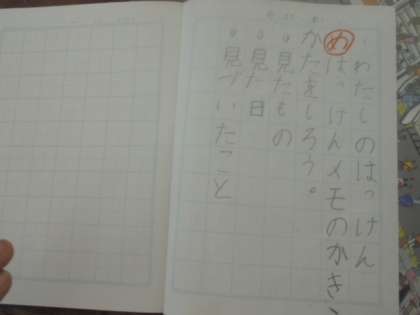 ・わたしのはっけん
めはっけんメモのかき
かたをしろう。
・見たもの
・見た日
・見づいたこと